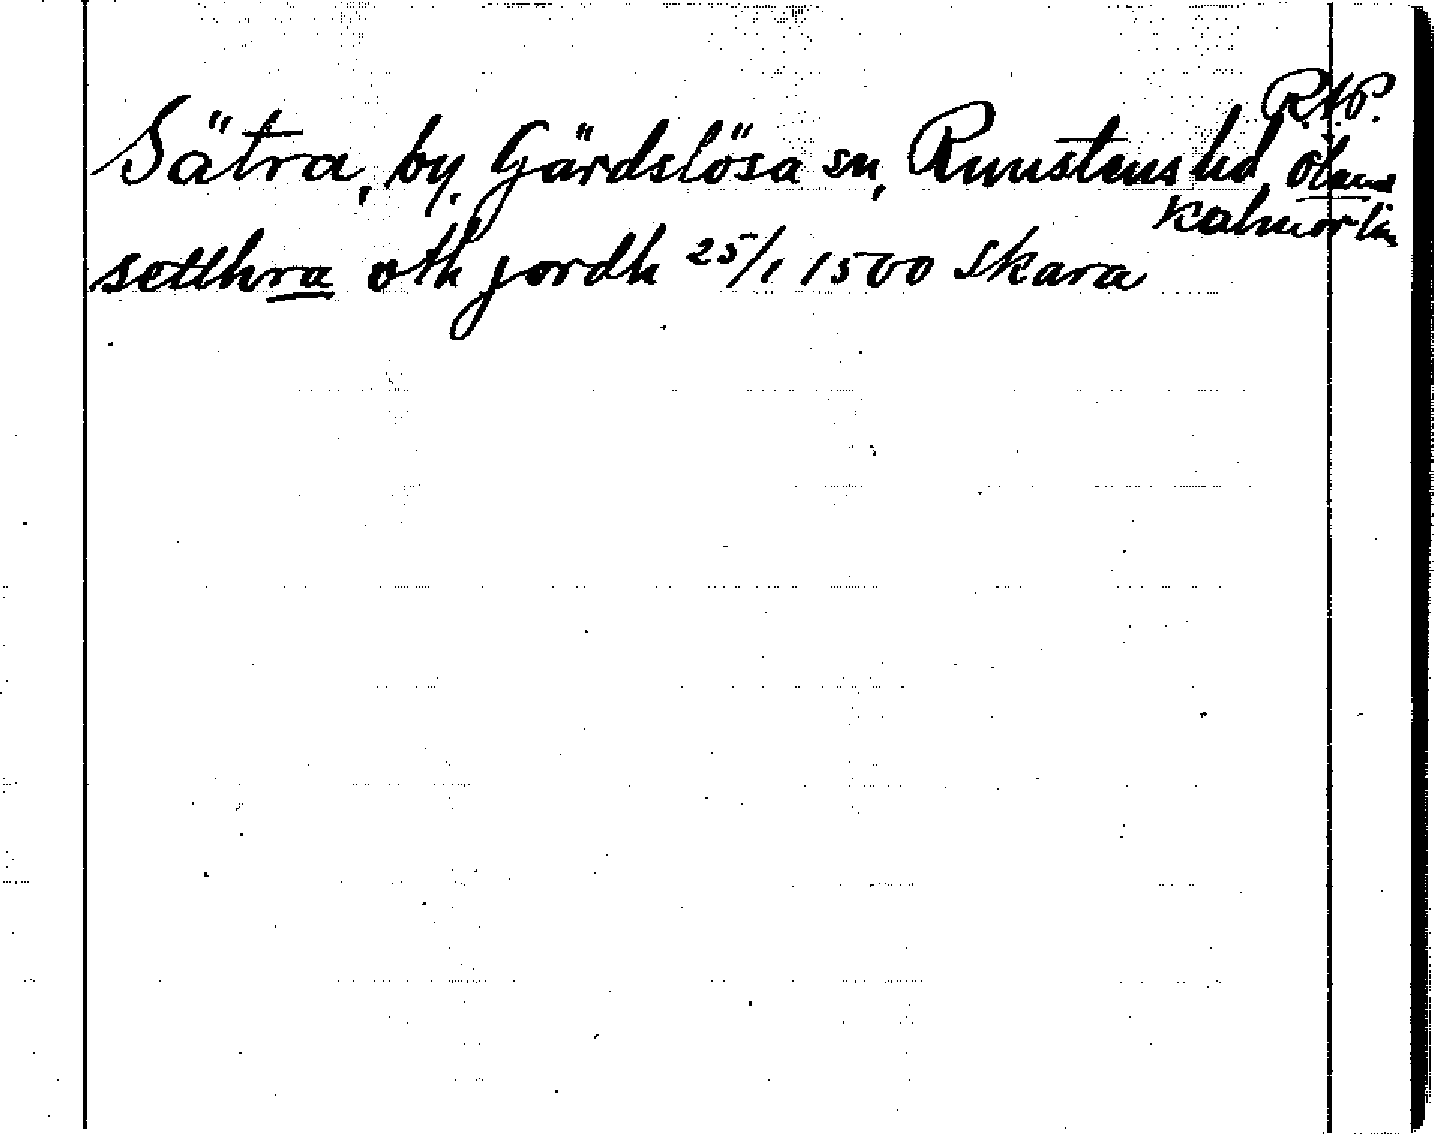 R.A.P.
Sätra, by, Gärdslösa sn, Runstens hd, Ölands
Kalmar län
setthra oth jordh 25/1 1500 Skara